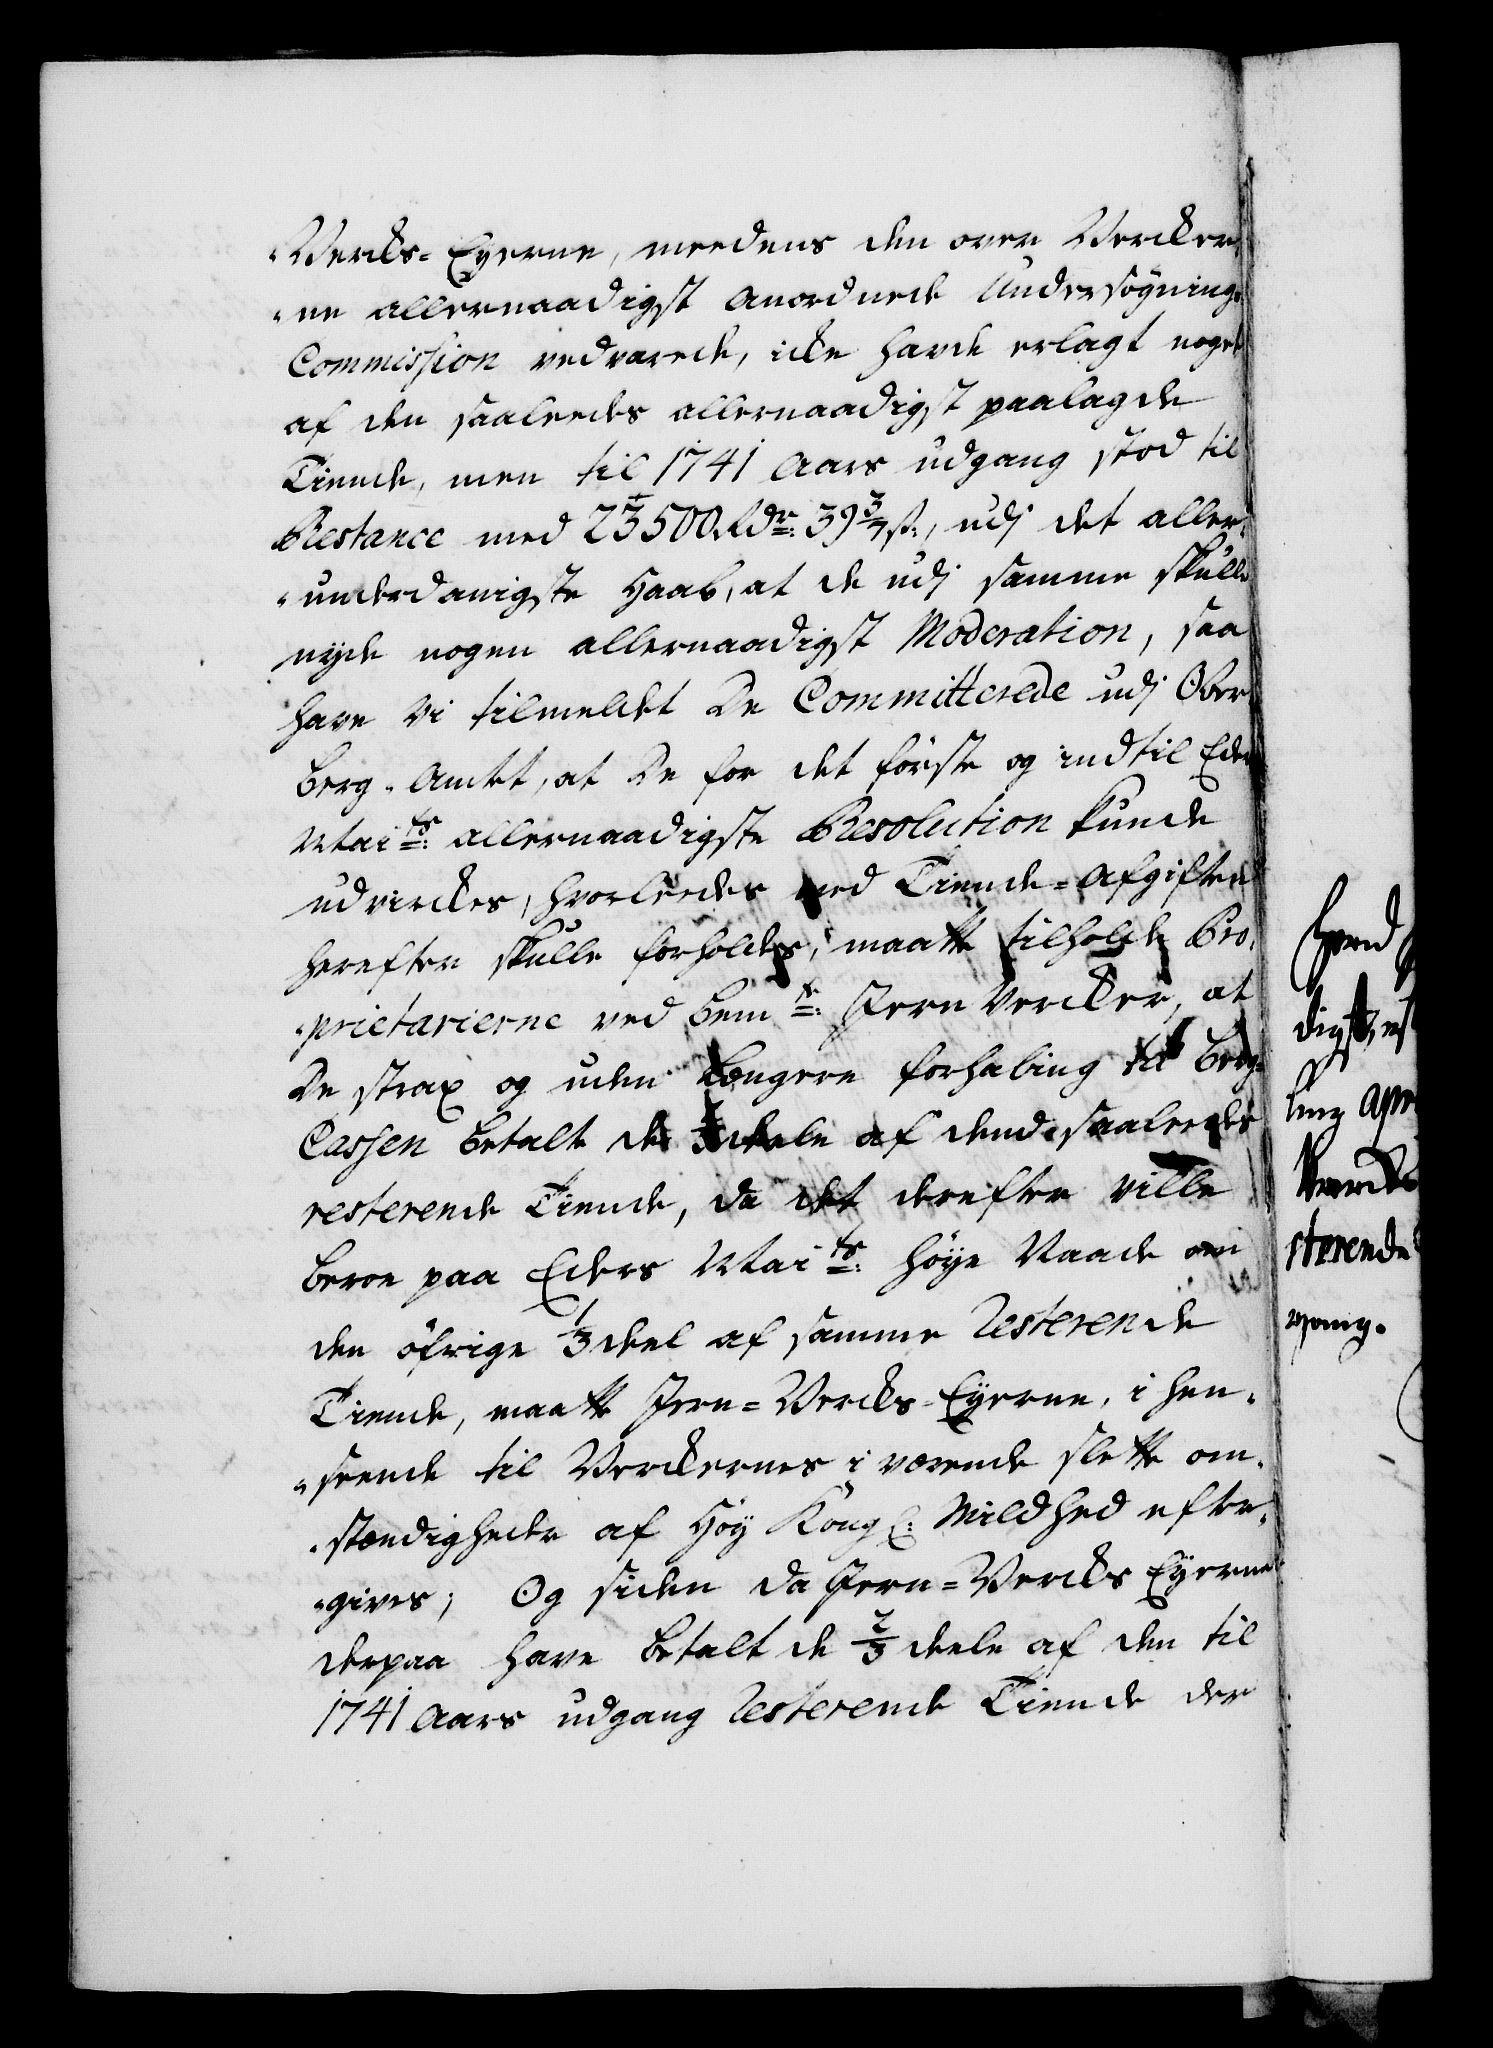 Vercks-Eyerne, meedens den over Vercker-
ne allernaadigst anordnede Undersøgnings
Commission vedvarede, icke havde erlagt noget
af den saaleedes allernaadigst paalagde
Tiende, men til 1741 Aars udgang stod til
Restance med 23500 Rdr: 39 3/4 ß:, udj det aller-
underdanigste Haab, at de udj samme skulle
nyde nogen allernaadigst Moderation, saa
have Vi tilmeldet De Committerede udj Ober
Berg-Amtet, at De for det første og indtil Eders
Mai ts: allernaadigste Resolution kunde
udvirckes, hvorleedes med Tiende-Afgiften
herefter skulle forholdes, maatte tilholde Pro-
prietarierne ved bem te: Jern Vercker, at
De strax og uden længere forhaling til Berg-
Cassen betalte de 2/3 deele af dend saaleedes
resterende Tiende, da det derefter ville
beroe paa Eders Mai ts: høye Naade om
den øfrige 1/3 deel af samme resterende
Tiende, maatte Jern-Vercks-Eyerne, i hen-
seende til Verckernes i værende slette om-
stændigheder af Høy Kongl: Mildhed efter-
gives; Og siden da Jern-Vercks Eyerne
derpaa have betalt de 2/3 deele af den til
1741 Aars udgang resterende Tiende der